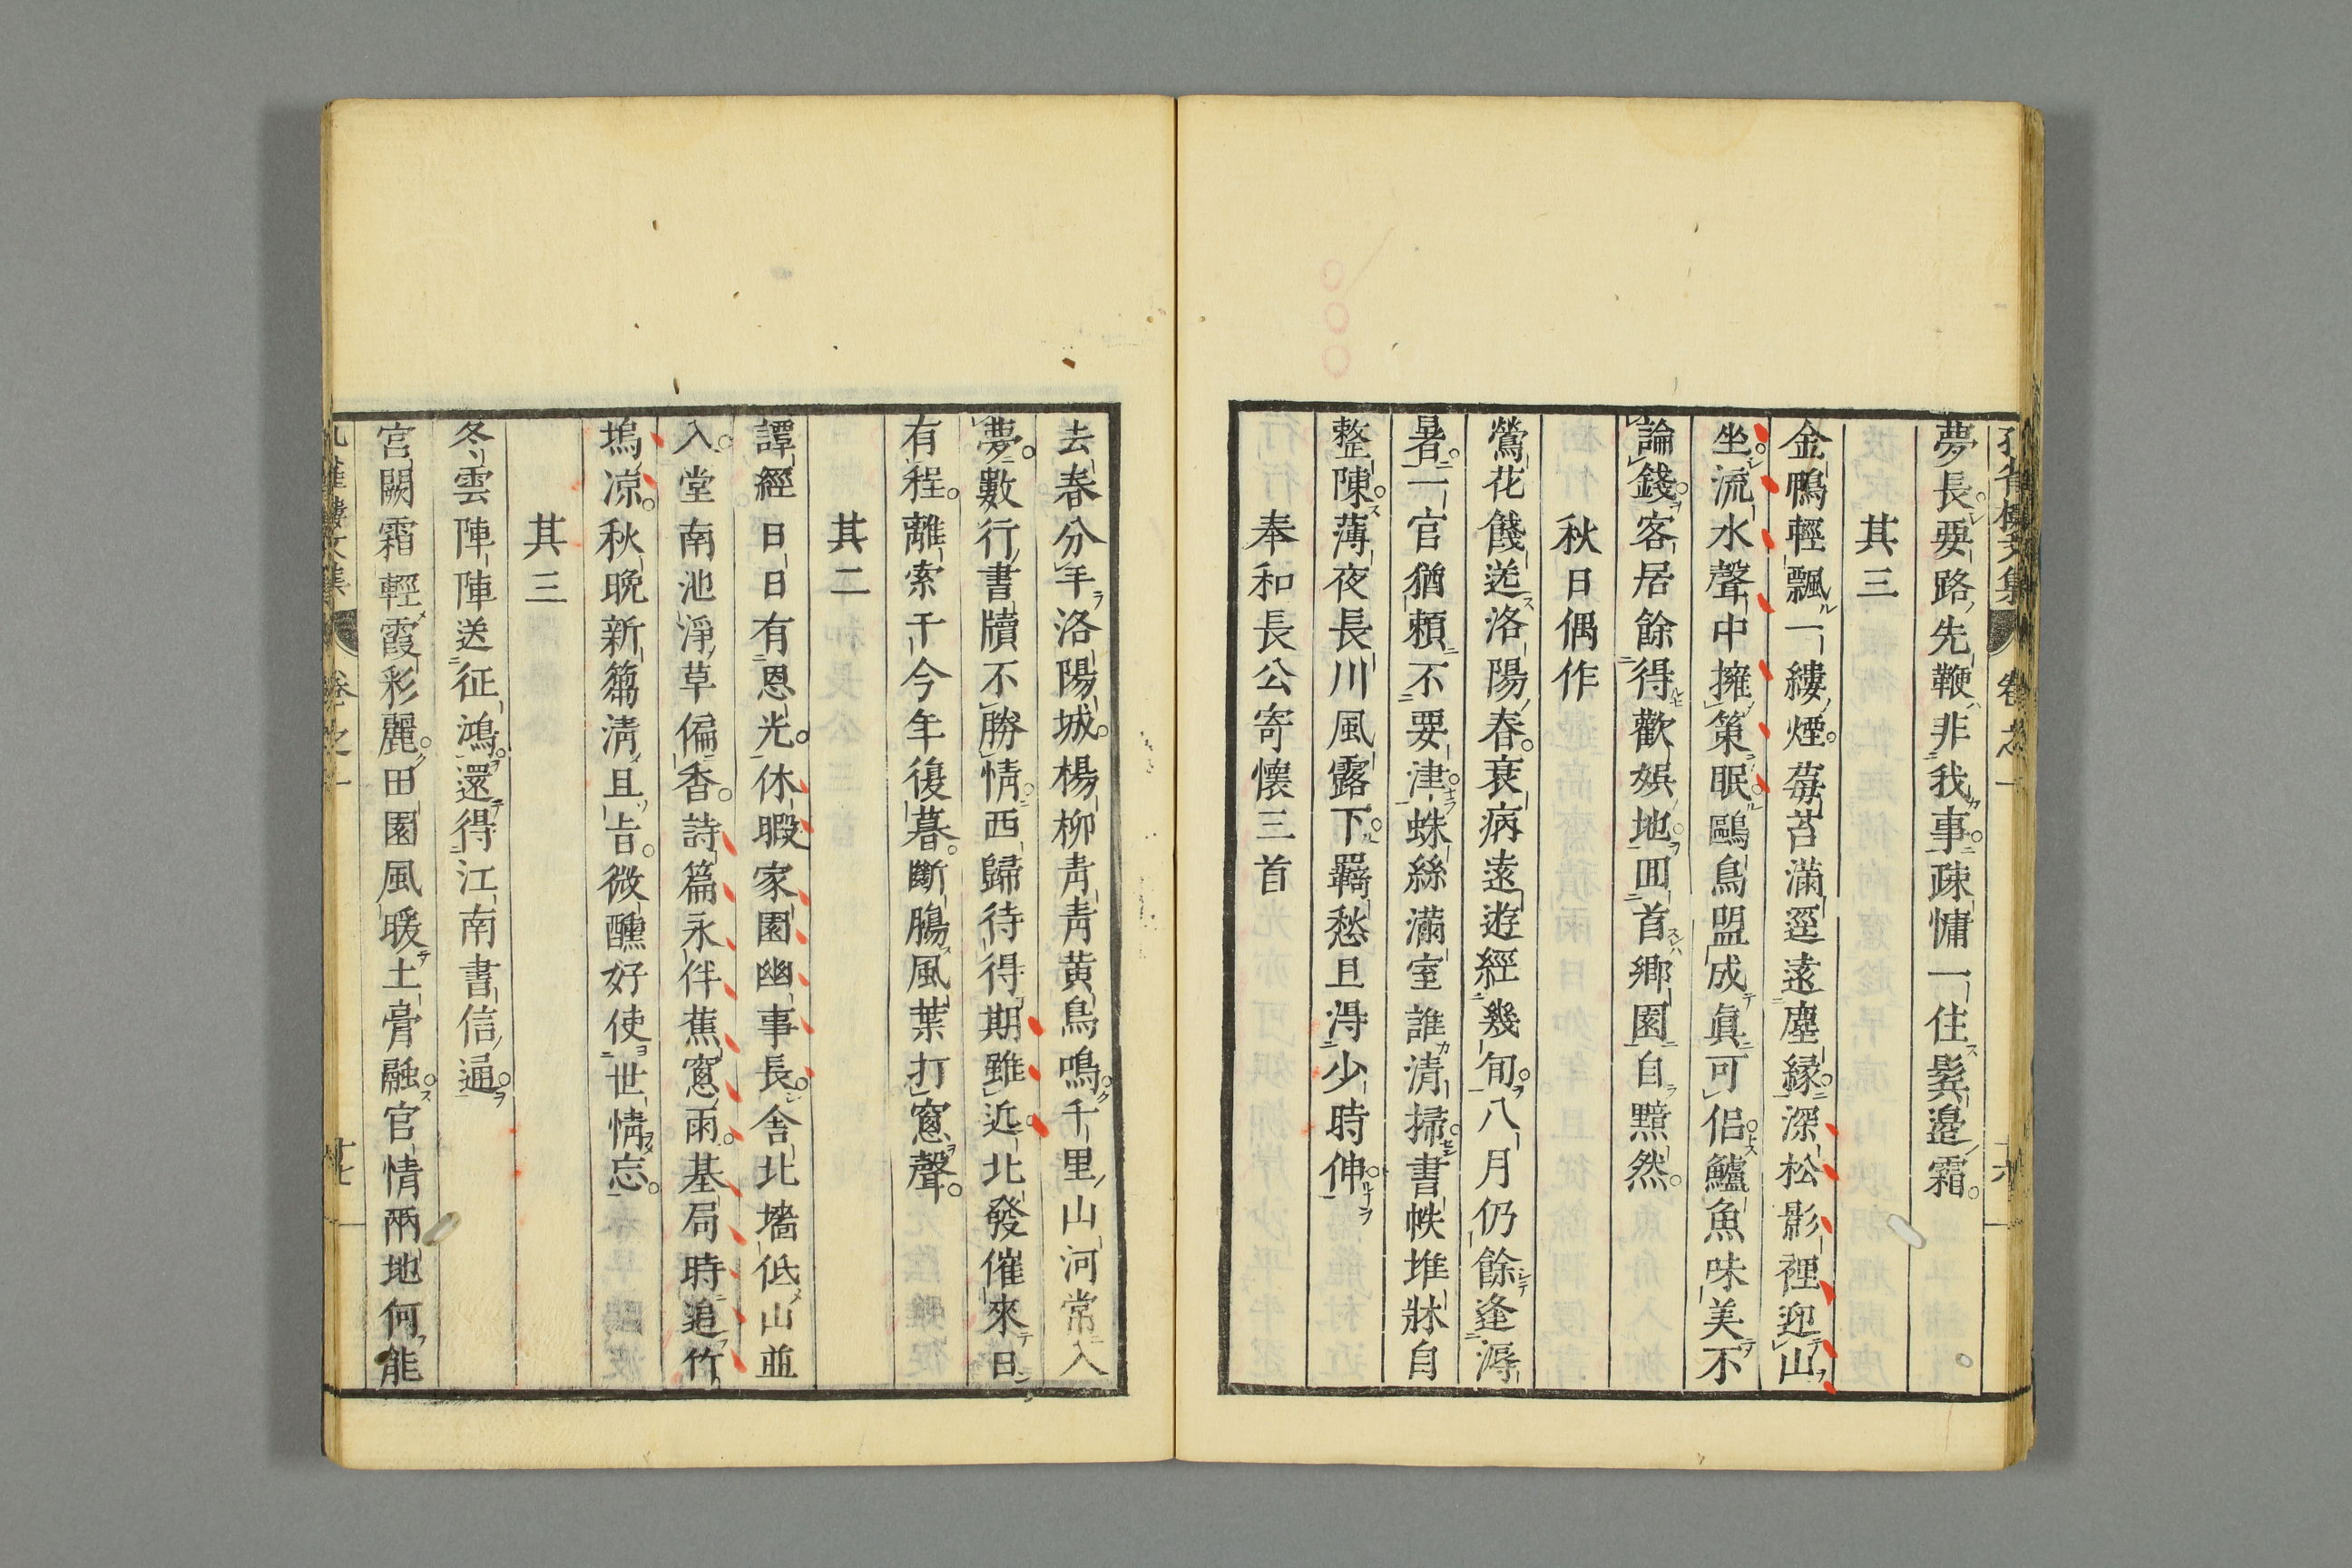 夢長要路先鞭非我事疎慵一住鬂邉霜
其三
金鴨輕飄一縷煙莓苔滿逕遠塵緣深松影裡迎山
坐流水聲中擁策眠鷗鳥盟成眞可侶鱸魚味美不
論錢客居餘得歡娯地囬首鄉園自黯然
秋日偶作
鶯花餞送洛陽春衰病遠遊經幾旬八月仍餘逢溽
暑一官猶賴不要津蛛絲滿室誰清掃書帙堆牀自
整陳薄夜長川風露下羇愁且淂少時伸
奉和長公寄懷三首
去春分手洛陽城楊柳靑靑黄鳥鳴千里山河常入
夢數行書牘不勝情西歸待得期雖近北發催來日
有程離索于今年復暮斷膓風葉打窻聲
其二
譚經日日有恩光休暇家園幽事長舎北墻低山並
入堂南池淨草偏香詩篇永伴蕉窻雨基局時追竹
塢凉秋晩新篘淸且旨微醺好使世情忘
其三
冬雲陣陣送征鴻還得江南書信通
宮闕霜輕霞彩麗田園風暖土膏融官情兩地何能